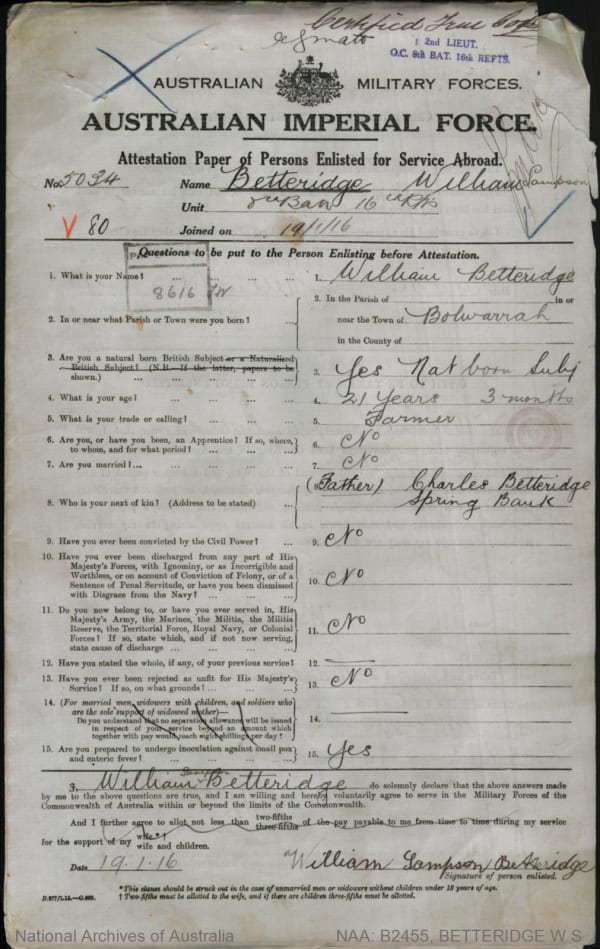 Certified True Copy
2ND LIEUT.
O.C. 8th BAT. 16th REFTS.
AUSTRALIAN MILITARY FORCES.
AUSTRALIAN IMPERIAL FORCE.
Attestation Paper of Persons Enlisted for Service Abroad.
No. 5034 Name Betteridge William Sampson
Unit 8th Batn 16th Rfts
V 80 Joined on 19/1/16
Questions to be put to the Person Enlisting before Attestation.
1. What is your Name? ... ... ... ... 1. William Betteridge
8616
2. In or near what Parish or Town were you born? ... 2. In the Parish of in or
near the Town of Bolwarrah
in the County of
3. Are you a natural born British Subject or a Naturalized
British Subject? (N.B.—If the latter, papers to be
shown.) ... ... ... ... 3. Yes Nat born Subj
4. What is your age? ... ... ... ... 4. 21 Years 3 months
5. What is your trade or calling? ... ... ... 5. Farmer
6. Are you, or have you been, an Apprentice? If so, where,
to whom, and for what period? ... ... ... 6. No
7. Are you married?... ... ... ... ... 7. No
8. Who is your next of kin? (Address to be stated) ... 8. (Father) Charles Betteridge
Spring Bank
9. Have you ever been convicted by the Civil Power? ... 9. No
10. Have you ever been discharged from any part of His
Majesty's Forces, with Ignominy, or as Incorrigible and
Worthless, or on account of Conviction of Felony, or of a
Sentence of Penal Servitude, or have you been dismissed
with Disgrace from the Navy? ... ... ... 10. No
11. Do you now belong to, or have you ever served in, His
Majesty's Army, the Marines, the Militia, the Militia
Reserve, the Territorial Force, Royal Navy, or Colonial
Forces? If so, state which, and if not now serving,
state cause of discharge ... ... ... ... 11. No
12. Have you stated the whole, if any, of your previous service? 12.
13. Have you ever been rejected as unfit for His Majesty's
Service? If so, on what grounds? ... ... ... 13. No
14. (For married men, widowers with children, and soldiers who
are the sole support of widowed mother)—
Do you understand that no separation allowance will be issued
in respect of your service beyond an amount which
together with pay would reach eight shillings per day? 14.
15. Are you prepared to undergo inoculation against small pox
and enteric fever? ... ... ... ... 15. Yes
I, William Sampson Betteridge do solemnly declare that the above answers made
by me to the above questions are true, and I am willing and hereby voluntarily agree to serve in the Military Forces of the
Commonwealth of Australia within or beyond the limits of the Commonwealth.
And I further agree to allot not less than two-fifths three-fifths of the pay payable to me from time to time during my service
for the support of my wife* wife and children.†
Date 19.1.16 William Sampson Betteridge
Signature of person enlisted.
*This clause should be struck out in the case of unmarried men or widowers without children under 18 years of age.
† Two-fifths must be allotted to the wife, and if there are children three-fifths must be allotted.
National Archives of Australia NAA: B2455, BETTERIDGE W S